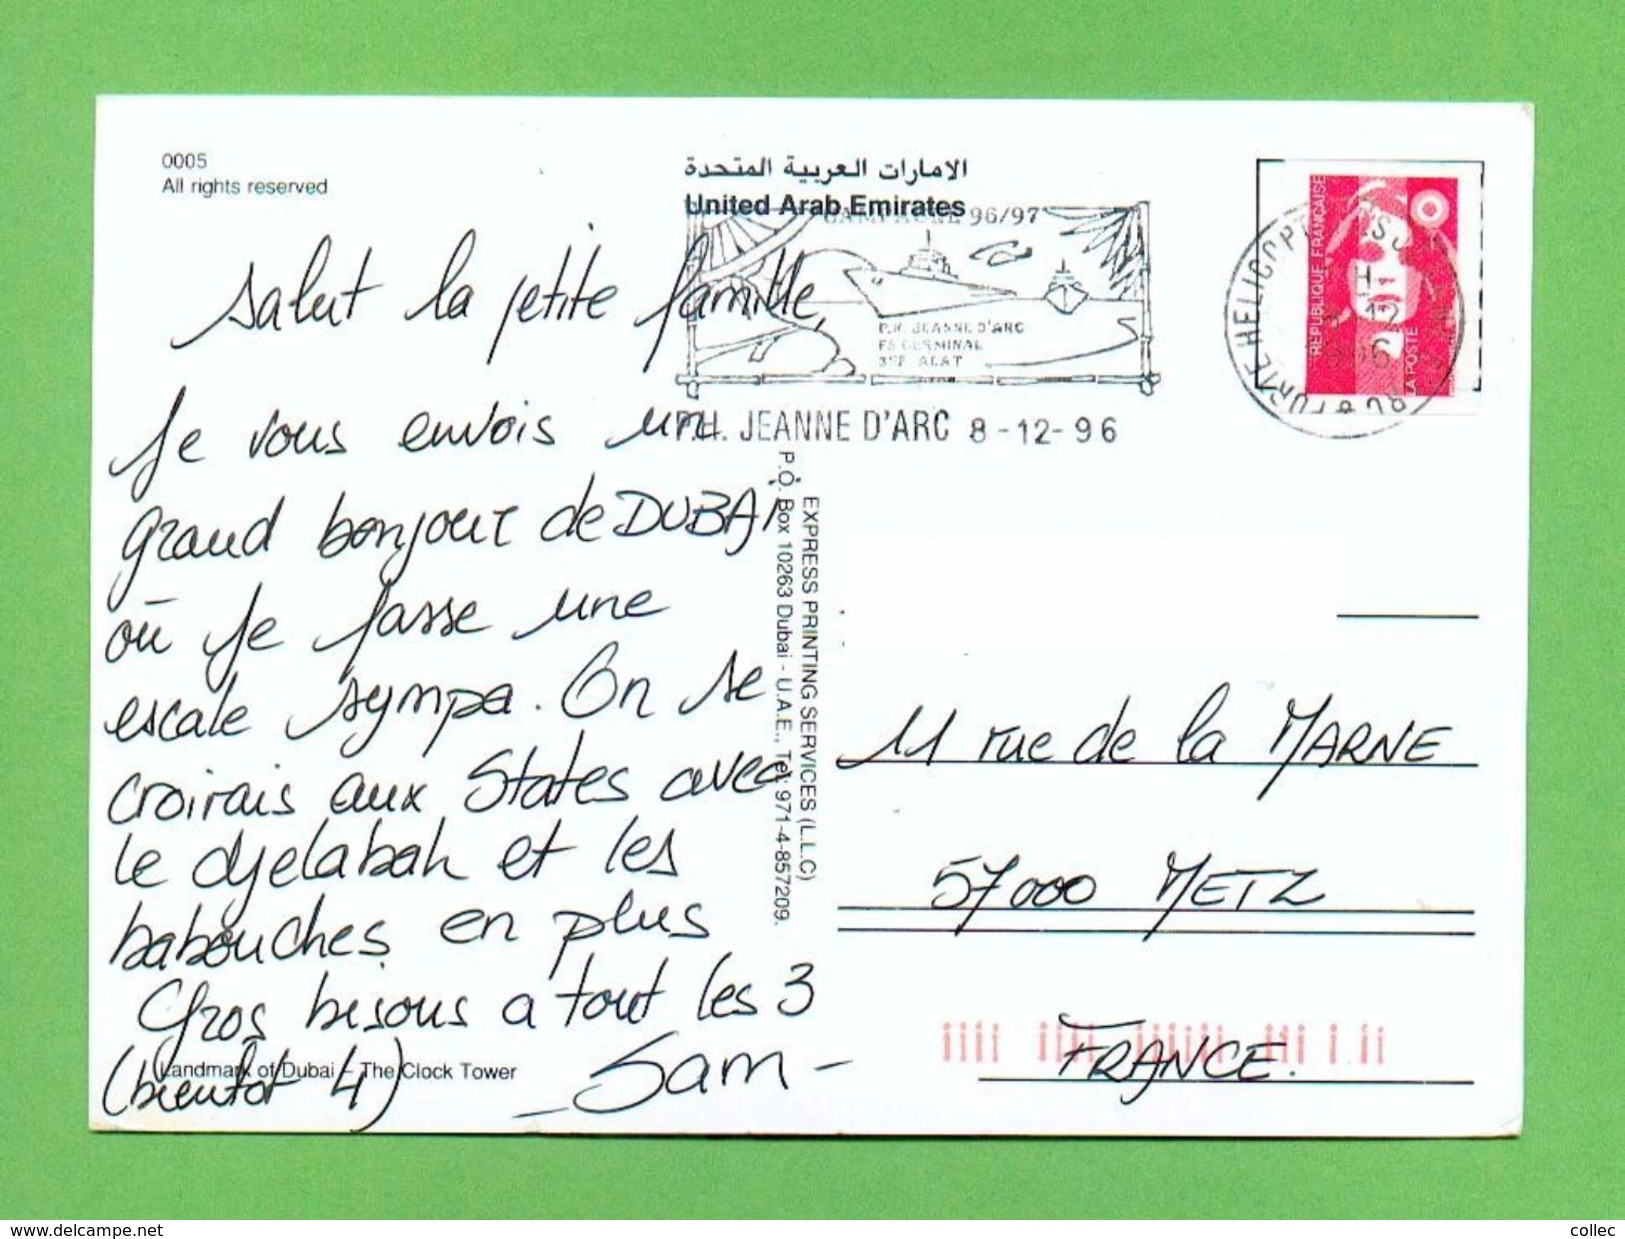 0005
All rights reserved
الامارات العربية المتحدة
United Arab Emirates
CAMPAGNE 96/97
P.H. JEANNE D'ARC
FS GERMINAL
3EME ALAT
P.H. JEANNE D'ARC 8-12-96
REPUBLIQUE FRANÇAISE
LA POSTE
PORTE HELICOPT
12
Salut la petite famille,
Je vous envois un
grand bonjour de DUBAi
où je passe une
escale sympa. On se
croirais aux States avec
le djelabah et les
babouches en plus
Gros bisous a tout les 3
(bientot 4)
- Sam -
Landmark of Dubai - The Clock Tower
EXPRESS PRINTING SERVICES (L.L.C)
P.O. Box 10263 Dubai - U.A.E., Tel: 971-4-857209.
11 rue de la MARNE
57000 METZ
FRANCE.
www.delcampe.net
collec